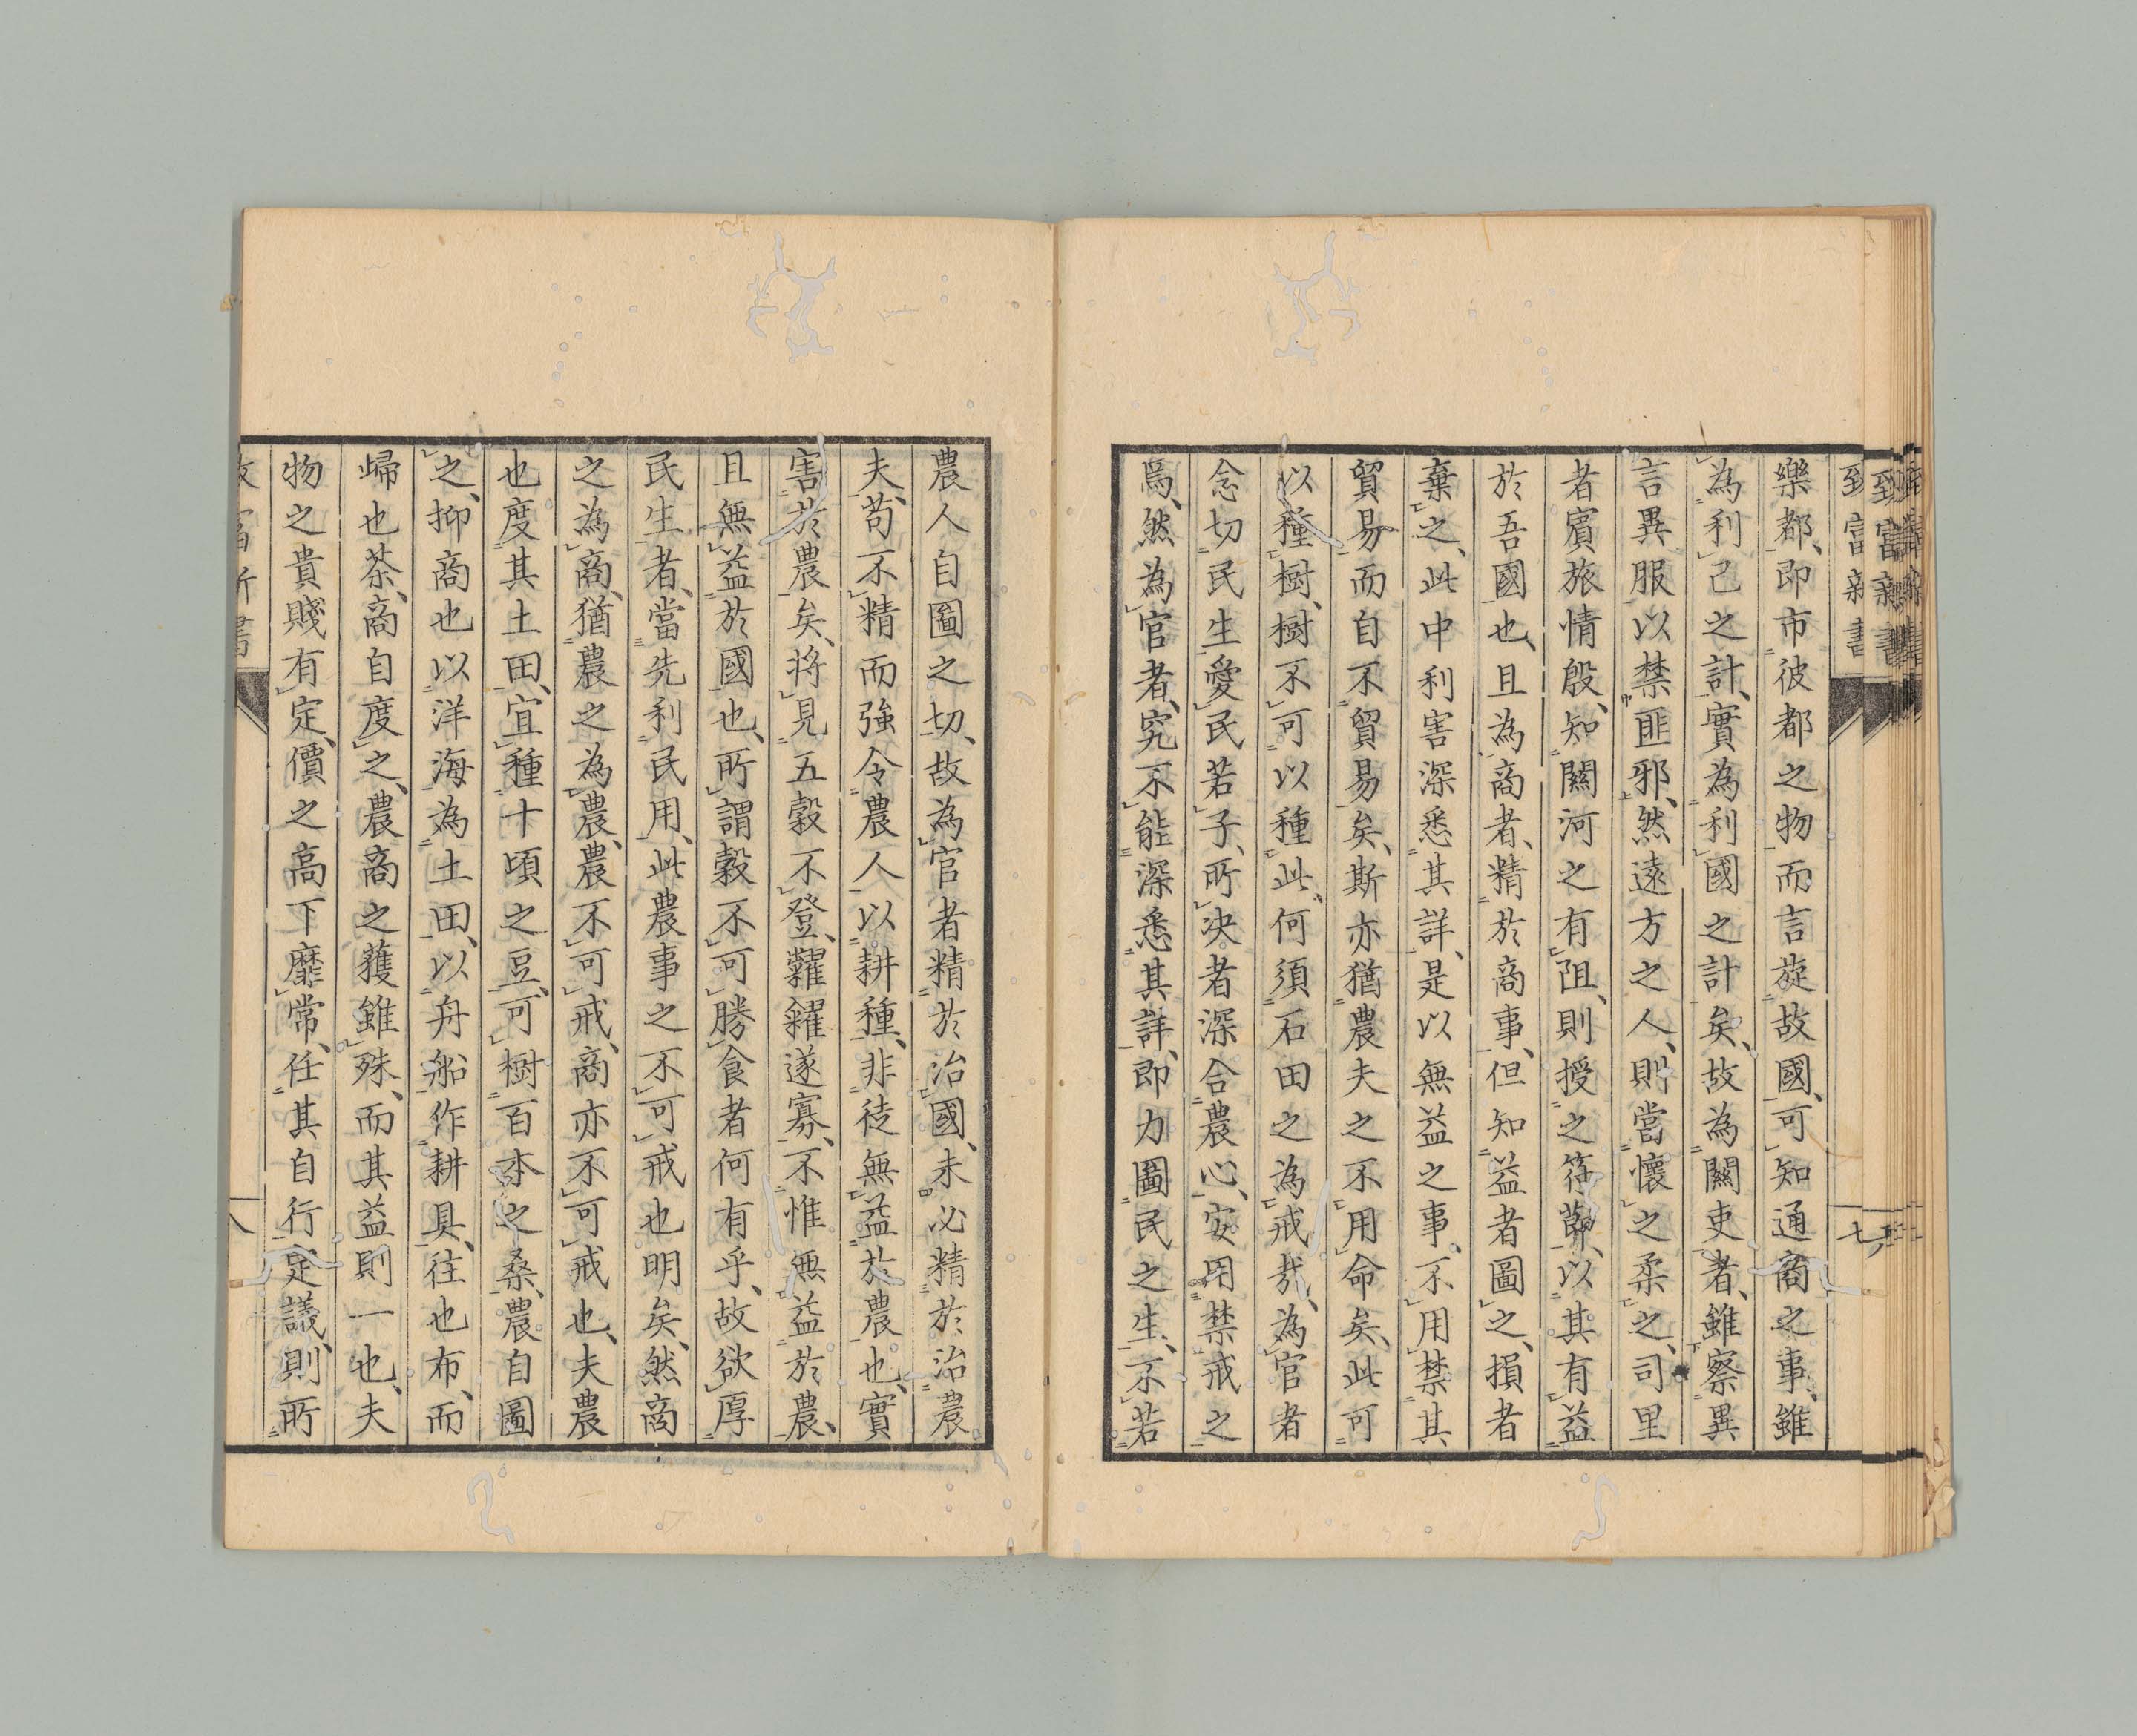 致富新書
七
樂都、即市彼都之物而言旋故國、可知通商之事、雖
為利己之計、實為利國之計矣、故為關吏者、雖察異
言異服以禁匪邪、然遠方之人、則當懷之柔之、司里
者賓旅情殷、知關河之有阻、則授之符節、以其有益
於吾國也、且為商者、精於商事、但知益者圖之、損者
棄之、此中利害深悉其詳、是以無益之事、不用禁其
貿易而自不貿易矣、斯亦猶農夫之不用命矣、此可
以種樹、樹不可以種此、何須石田之為戒哉、為官者
念切民生、愛民若子、所決者深合農心、安用禁戒之
焉、然為官者、究不能深悉其詳、即力圖民之生、不若
農人自圖之切、故為官者精於治國、未必精於治農
夫、苟不精而強令農人以耕種、非徒無益於農也、實
害於農矣、將見五穀不登、糶糴遂寡、不惟無益於農、
且無益於國也、所謂穀不可勝食者何有乎、故欲厚
民生者、當先利民用、此農事之不可戒也明矣、然商
之為商、猶農之為農、農不可戒、商亦不可戒也、夫農
也度其土田、宜種十頃之豆、可樹百本之桑、農自圖
之、抑商也以洋海為土田、以舟船作耕具、往也布、而
歸也茶、商自度之、農商之獲雖殊、而其益則一也、夫
物之貴賤有定、價之高下靡常、任其自行定議、則所
致富新書
八